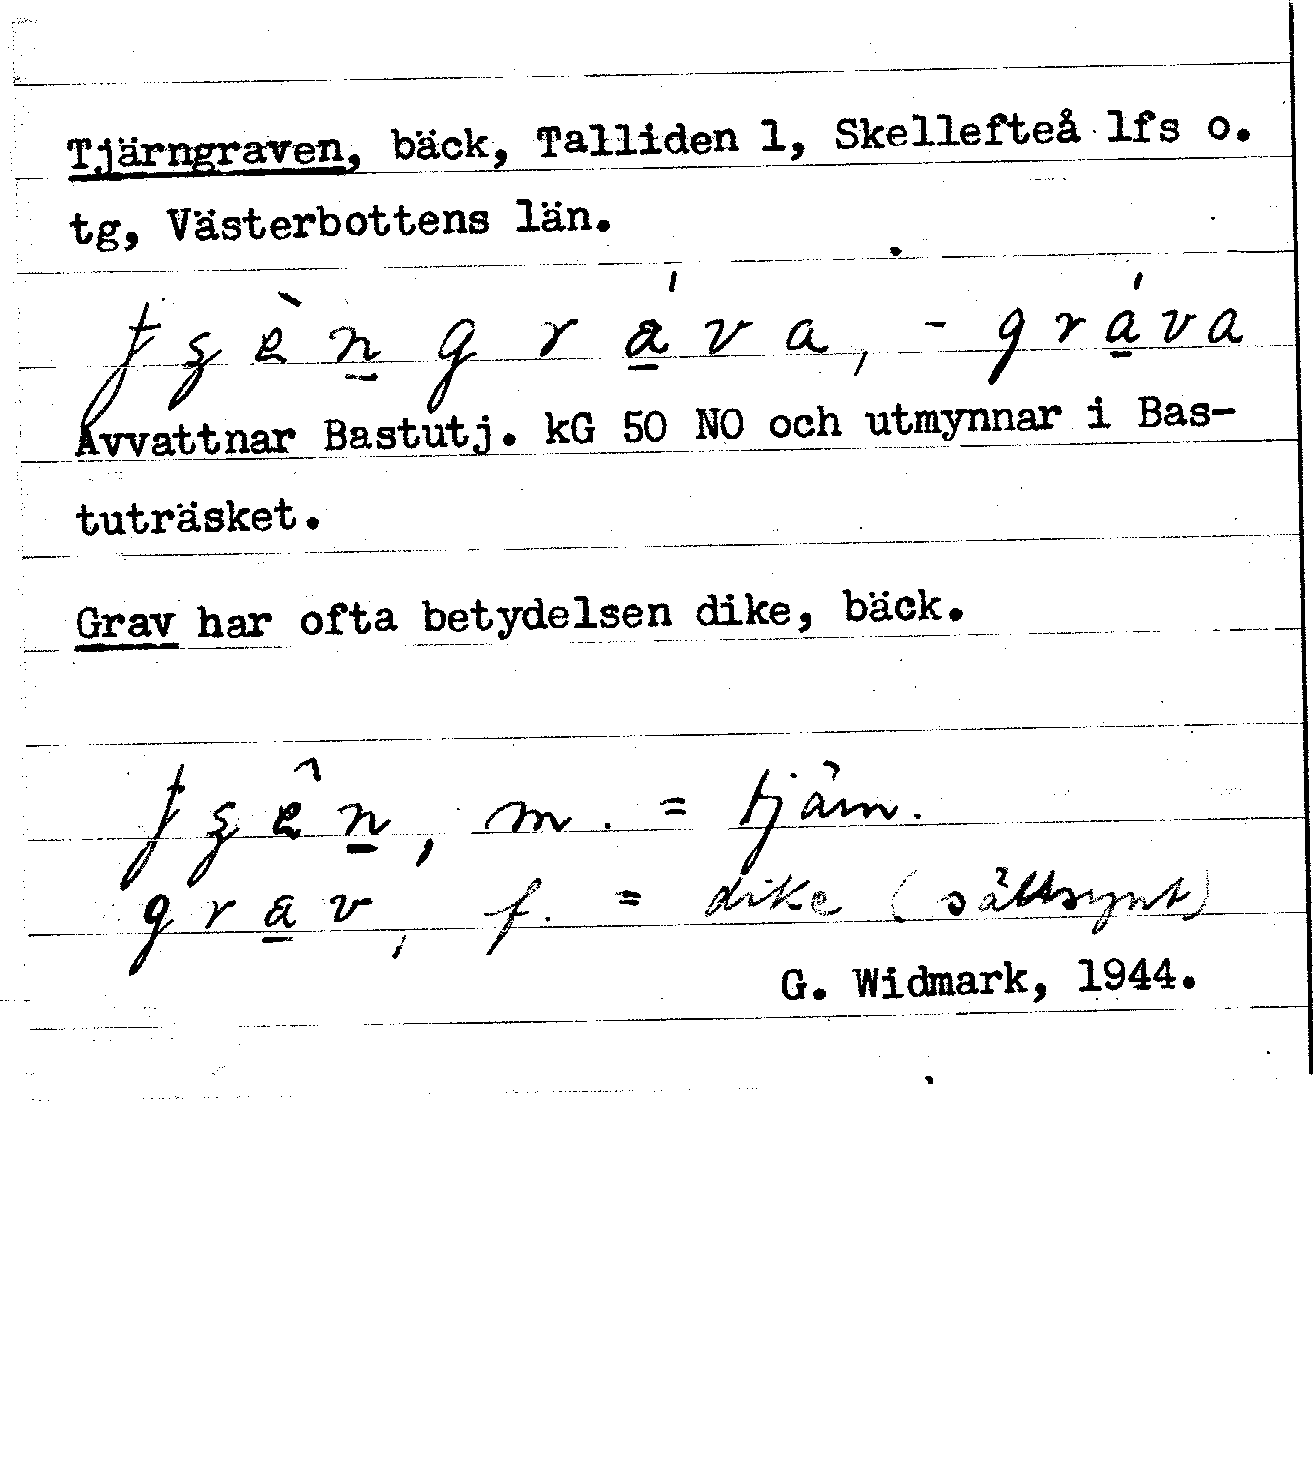 Tjärngraven, bäck, Talliden 1, Skellefteå lfs o.
tg, Västerbottens län.
grava, -grava
Avvattnar Bastutj. kG 50 NO och utmynnar i Bas-
tuträsket.
Grav har ofta betydelsen dike, bäck.
m. = tjärn.
grav, f. = dike (sällsynt)
G. Widmark, 1944.